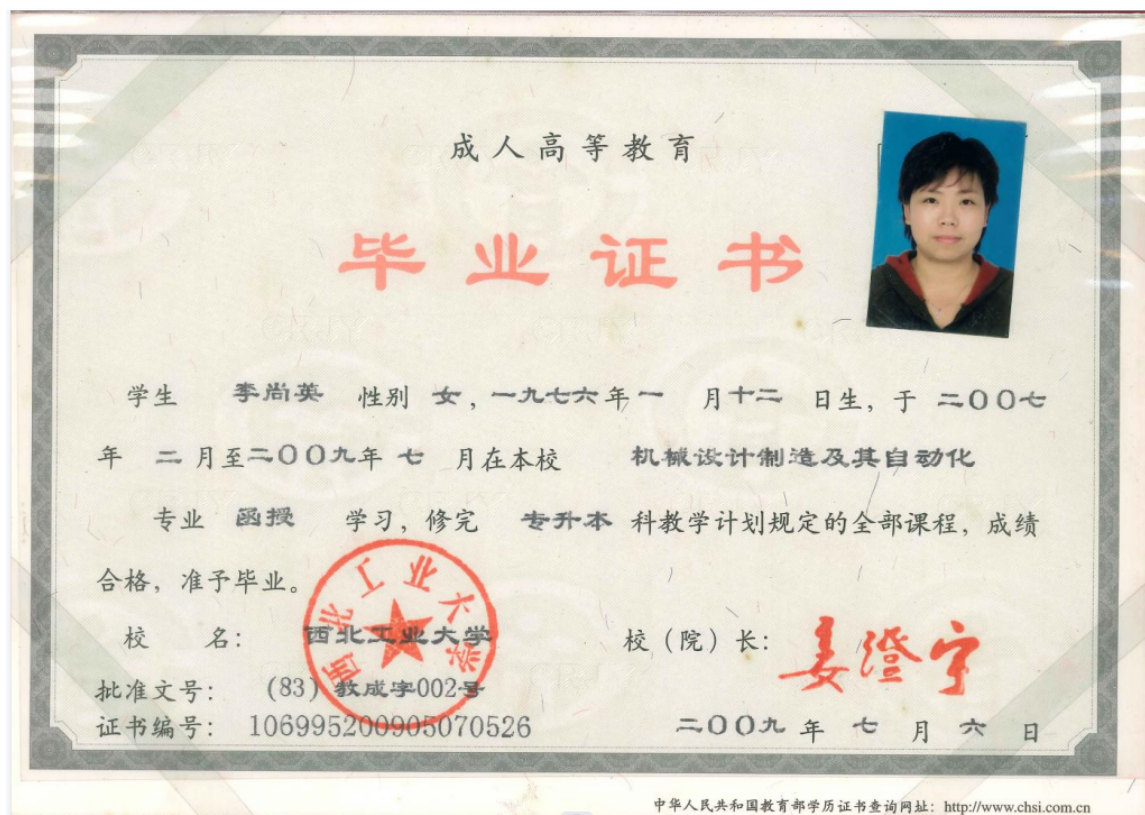 成人高等教育
毕业证书
学生 李尚英 性别 女，一九七六年一 月十二 日生，于 二〇〇七
年 二月至二〇〇九年 七 月在本校 机械设计制造及其自动化
专业 函授 学习，修完 专升本 科教学计划规定的全部课程，成绩
合格，准予毕业。
校 名： 西北工业大学
西北工业大学
校（院）长： 姜澄宇
批准文号： (83) 教成字002号
证书编号： 106995200905070526
二〇〇九 年 七 月 六 日
中华人民共和国教育部学历证书查询网址：http://www.chsi.com.cn